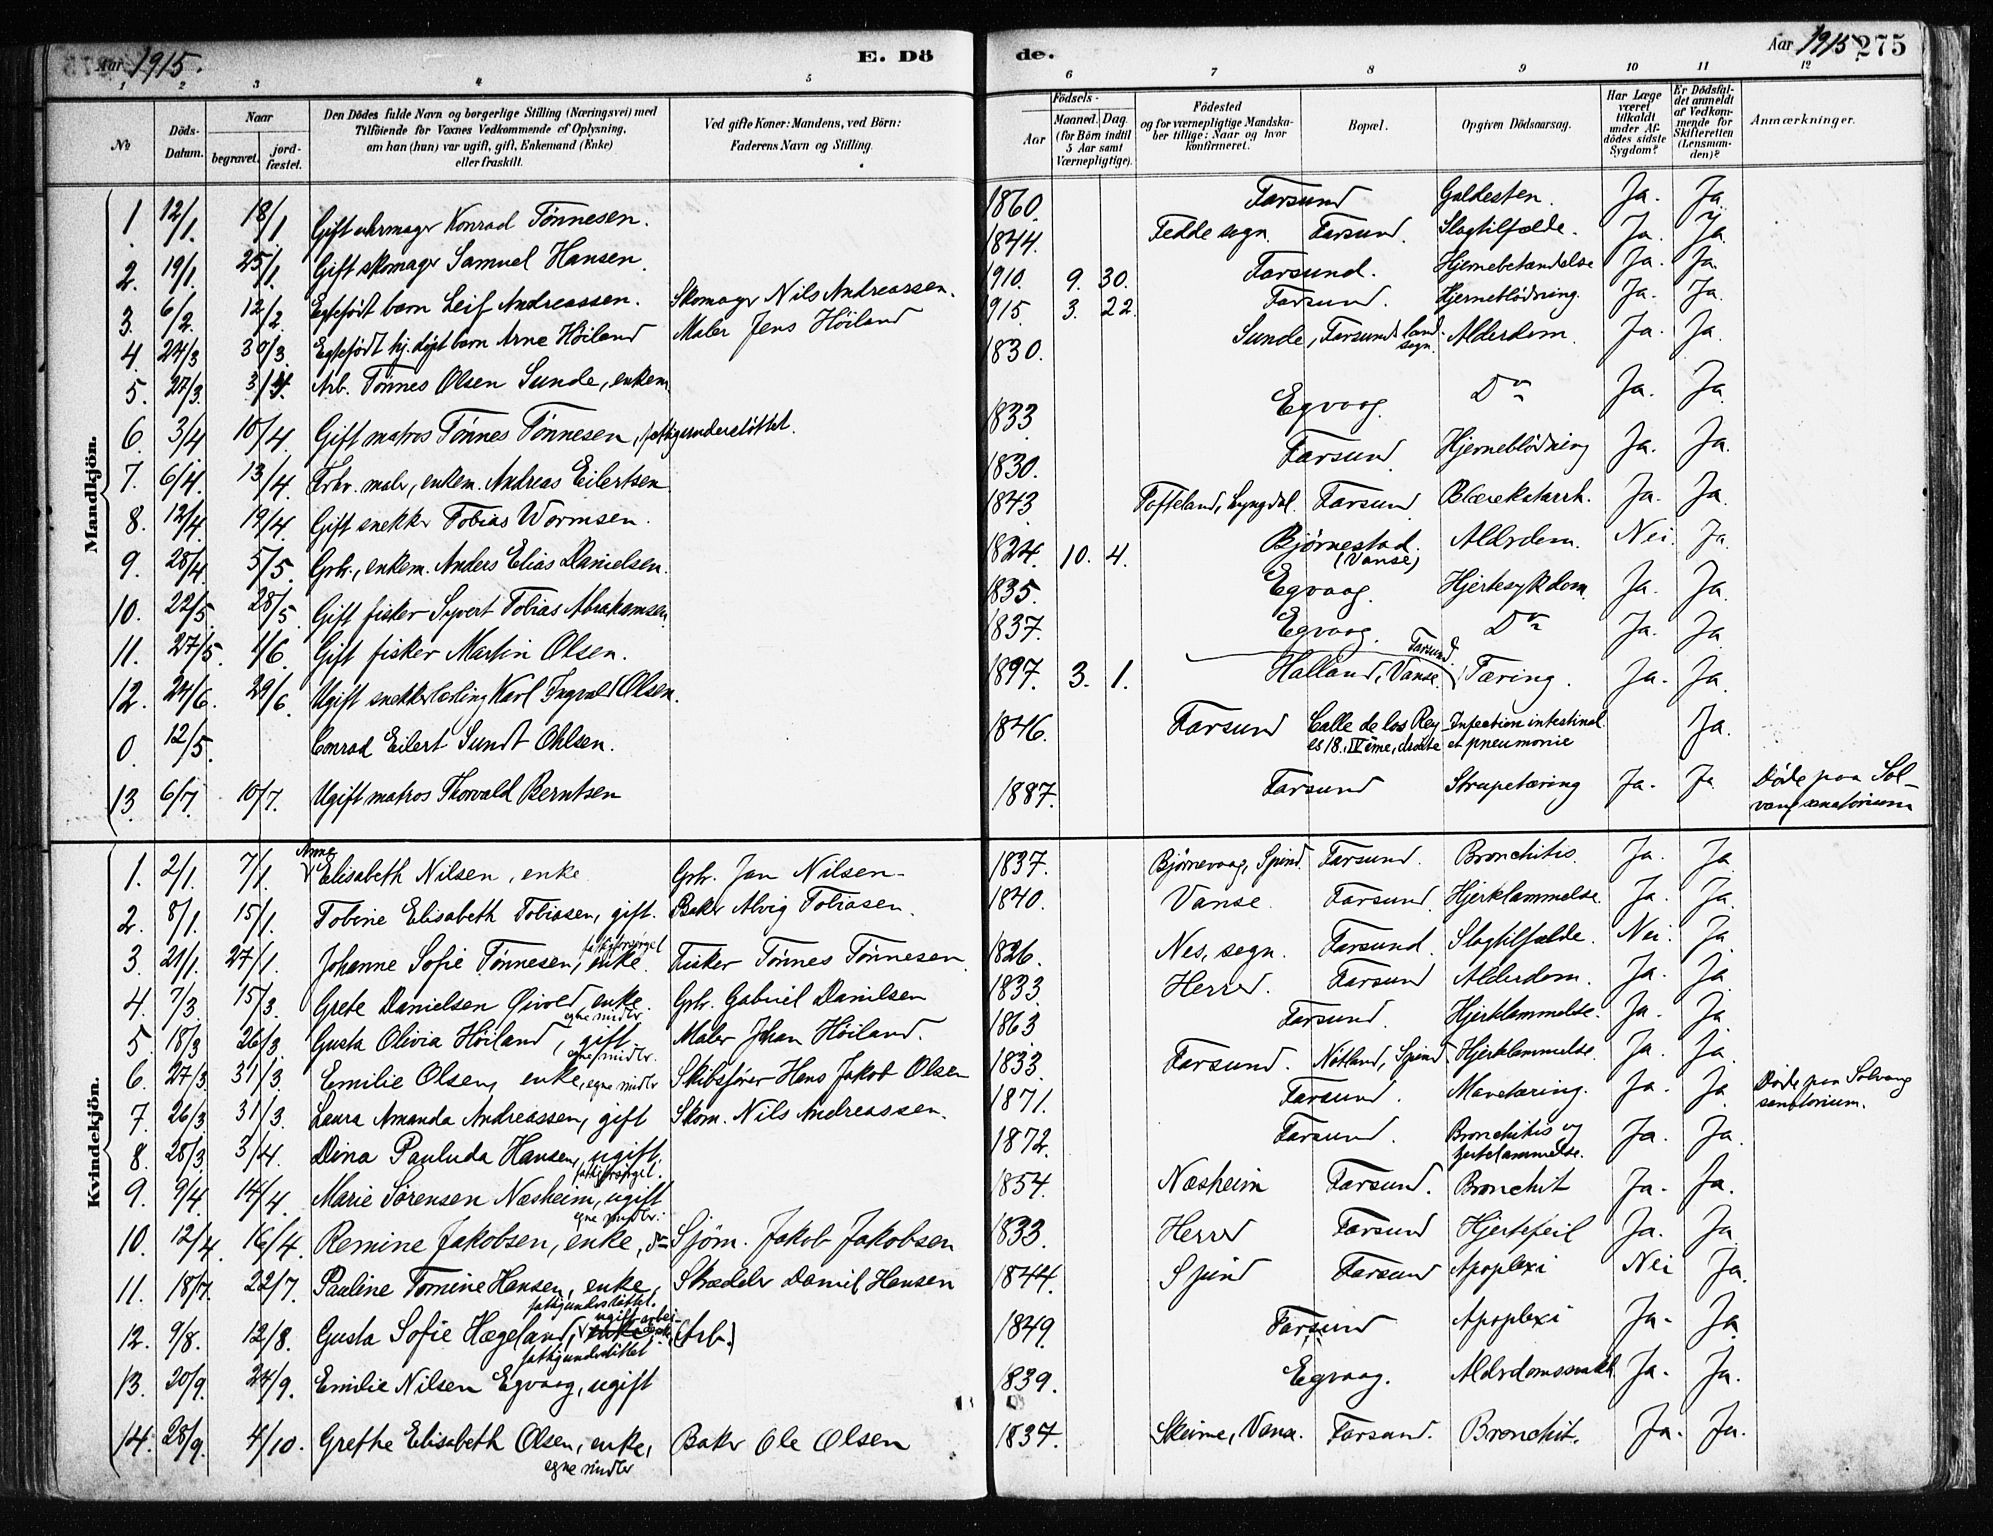 Aar 1915.
E. Dö
de.
Aar 1915
275
1 2 3 4 5 6 7 8 9 10 11 12
№
Döds-Datum.
Naar
begravet.
jordfæstet.
Den Dödes fulde Navn og borgerlige Stilling (Næringsvei) med
Tilföiende for Voxnes Vedkommende of Oplysning,
om han (hun) var ugift, gift, Enkemand (Enke)
eller fraskilt.
Ved gifte Koner: Mandens, ved Börn:
Faderens Navn og Stilling.
Födsels-
Aar
Maaned. Dag
(for Börn indtil
5 Aar samt
Værnepligtige).
Födested
og for værnepligtige Mandska-
ber tillige: Naar og hvor
konfirmeret.
Bopæl.
Opgiven Dödsaarsag.
Har Læge
været
tilkaldt
under Af-
dödes sidste
Sygdom?
Er Dödsfal-
det anmeldt
af Vedkom-
mende for
Skifteretten
(Lensman-
den)?
Anmærkninger.
Mandkjön.
1. 12/1. 18/1 Gift uhrmagr Konrad Tönnesen. 1860. Farsund Galdesten. Ja. Ja
2. 19/1. 25/1. Gift skomagr Samuel Hansen. 1844. Fedde sogn. Farsund. Slagtilfælde. Ja. Ja
3. 6/2. 12/2. Egtefødt barn Leif Andreassen. Skomagr Nils Andreassen. 1910. 9. 30. Farsund. Hjernebetændelse Ja. Ja
4. 24/3 30/3. Egtefødt hj. døpt barn Arne Höiland Maler Jens Höiland 1915. 3. 22. Farsund. Hjerneblödning. Ja. Ja.
5. 27/3. 3/4. Arb. Tönnes Olsen Sunde, enkem 1830. Sunde, Farsunds landsogn. Alderdom. Ja. Ja.
6. 3/4 10/4. Gift matros Tönnes Tönnesen, fattigunderstöttet. 1833 Egvaag. Do Ja. Ja.
7. 6/4. 13/4. Frhv. maler, enkem. Andreas Eilertsen 1830. Farsund Hjerneblödning Ja. Ja.
8. 12/4 19/4. Gift snekkr Tobias Wormsen. 1843 Tofteland, Lyngdal. Farsund Blærekatarrh. Ja. Ja.
9. 28/4 5/5. Grbr., enkem. Anders Elias Danielsen. 1824. 10. 4. Björnestad. (Vanse) Aldrdom. Nei. Ja.
10. 22/5. 28/5. Gift fisker Syvert Tobias Abrahamsen 1835. Egvaag. Hjertesykdom. Ja. Ja.
11. 27/5. 1/6. Gift fisker Martin Olsen. 1837. Egvaag. Do Ja. Ja
12. 24/6. 29/6. Ugift snekkerlærling Karl Ingvald Olsen. 1897. 3. 1. Halland, Vanse. Farsund. Tæring. Ja. Ja.
0. 12/5. Conrad Eilert Sundt Ohlsen. 1846. Farsund Calle de los Reyes 18, IVème, droite Infection intestinal et pneumonie Ja.
13. 6/7. 10/7. Ugift matros Thorvald Berntsen 1887. Farsund Strupetæring Ja. Ja Döde paa Solvang sanatorium
Kvindekjön.
1. 2/1. 7/1. Anne Elisabeth Nilsen, enke Grbr. Jan Nilsen. 1837. Björnevaag, Spind. Farsund. Bronchitis. Ja. Ja
2. 8/1. 15/1. Tobine Elisabeth Tobiasen, gift. Baker Alvig Tobiasen. 1840. Vanse. Farsund. Hjertelammelse. Ja. Ja.
3. 21/1. 27/1. Johanne Sofie Tönnesen, enke. fattigforsörget Fisker Tönnes Tönnesen. 1826. Nes, sogn. Farsund. Slagtilfælde. Nei. Ja.
4. 7/3. 15/3. Grete Danielsen Qvived, enke. egne midler. Grbr. Gabriel Danielsen 1833. Herred. Farsund Alderdom. Ja. Ja.
5. 18/3 26/3. Gusta Olivia Höiland, gift egne midler. Maler Johan Höiland. 1863 Farsund. Hjertelammelse. Ja. Ja.
6. 27/3. 31/3. Emilie Olsen, enke, egne midler Skibsförer Hans Jakob Olsen 1833. Farsund. Nötland, Spind. Hjertelammelse. Ja. Ja.
7. 26/3 31/3. Laura Amanda Andreassen, gift Skom. Nils Andreassen. 1871. Farsund. Mavetæring. Ja. Ja Döde paa Solvang sanatorium.
8. 28/3. 3/4. Dina Pauluda Hansen, ugift. fattigforsörget. 1872. Farsund. Bronchitis og hjertelammelse. Ja. Ja.
9. 9/4. 14/4. Marie Sörensen Næsheim, ugift egne midler. 1854. Næsheim Farsund. Bronchit Ja. Ja.
10. 12/4. 16/4. Remine Jakobsen, enke, do Sjöm. Jakob Jakobsen 1833. Herred Farsund Hjertefeil Ja. Ja
11. 18/7. 22/7. Pauline Tomine Hansen, enke, fattigunderstöttet. Skrædder Daniel Hansen 1844. Spind Farsund Apoplexi Nei Ja.
12. 9/8. 12/8. Gusta Sofie Hægeland, enke ugift arbeiderske fattigunderstöttet (Arb.) 1849. Farsund Apoplexi Ja. Ja
13. 20/9. 24/9. Emilie Nilsen Egvaag, ugift 1839. Egvaag. Aldrdomssvakh. Ja. Ja.
14. 28/9. 4/10. Grethe Elisabeth Olsen, enke, egne midler Baker Ole Olsen 1837. Skeime, Vanse. Farsund. Bronchit. Ja. Ja.